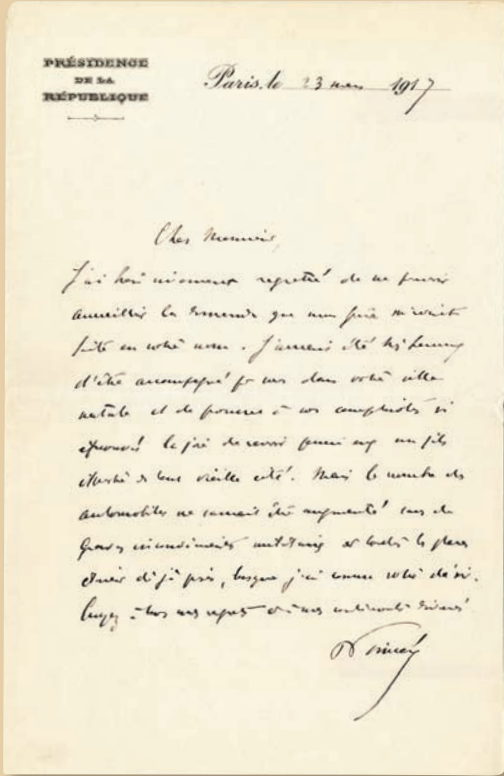 PRÉSIDENCE
DE LA
RÉPUBLIQUE
Paris, le 23 mars 1917
Cher Monsieur,
J'ai bien vivement regretté de ne pouvoir
accueillir la demande que mon frère m'avait
faite en votre nom. J'aurais été très heureux
d'être accompagné par vous dans votre ville
natale et de procurer à vos compatriotes si
éprouvés la joie de revoir parmi eux un fils
de leur vieille cité. Mais le nombre des
automobiles ne saurait être augmenté sans de
graves inconvénients militaires et toutes les places
étaient déjà prises, lorsque j'ai connu votre désir.
Croyez à tous mes regrets et à mes sentiments dévoués
R Poincaré